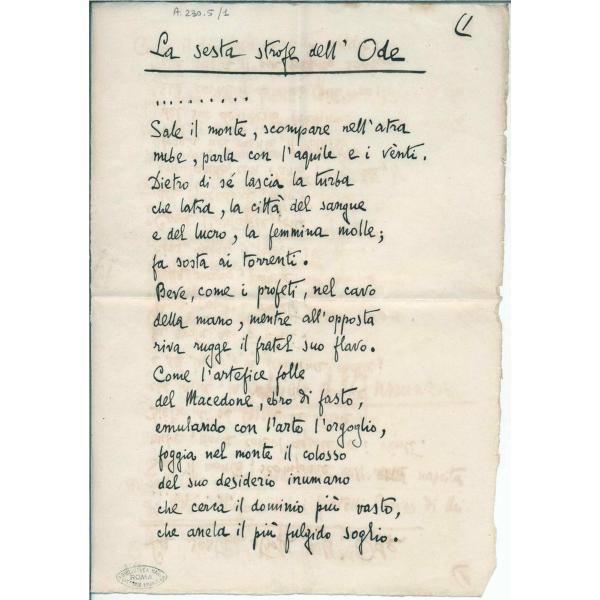 A. 230. 5/1
La sesta strofe dell' Ode
..........
Sale il monte, scompare nell'atra
nube, parla con l'aquile e i vènti.
Dietro di sé lascia la turba
che latra, la città del sangue
e del lucro, la femmina molle;
fa sosta ai torrenti.
Beve, come i profeti, nel cavo
della mano, mentre all'opposta
riva rugge il fratel suo flavo.
Come l'artefice folle
del Macedone, ebro di fasto,
emulando con l'arte l'orgoglio,
foggia nel monte il colosso
del suo desiderio inumano
che cerca il dominio più vasto,
che anela il più fulgido soglio.
ROMA